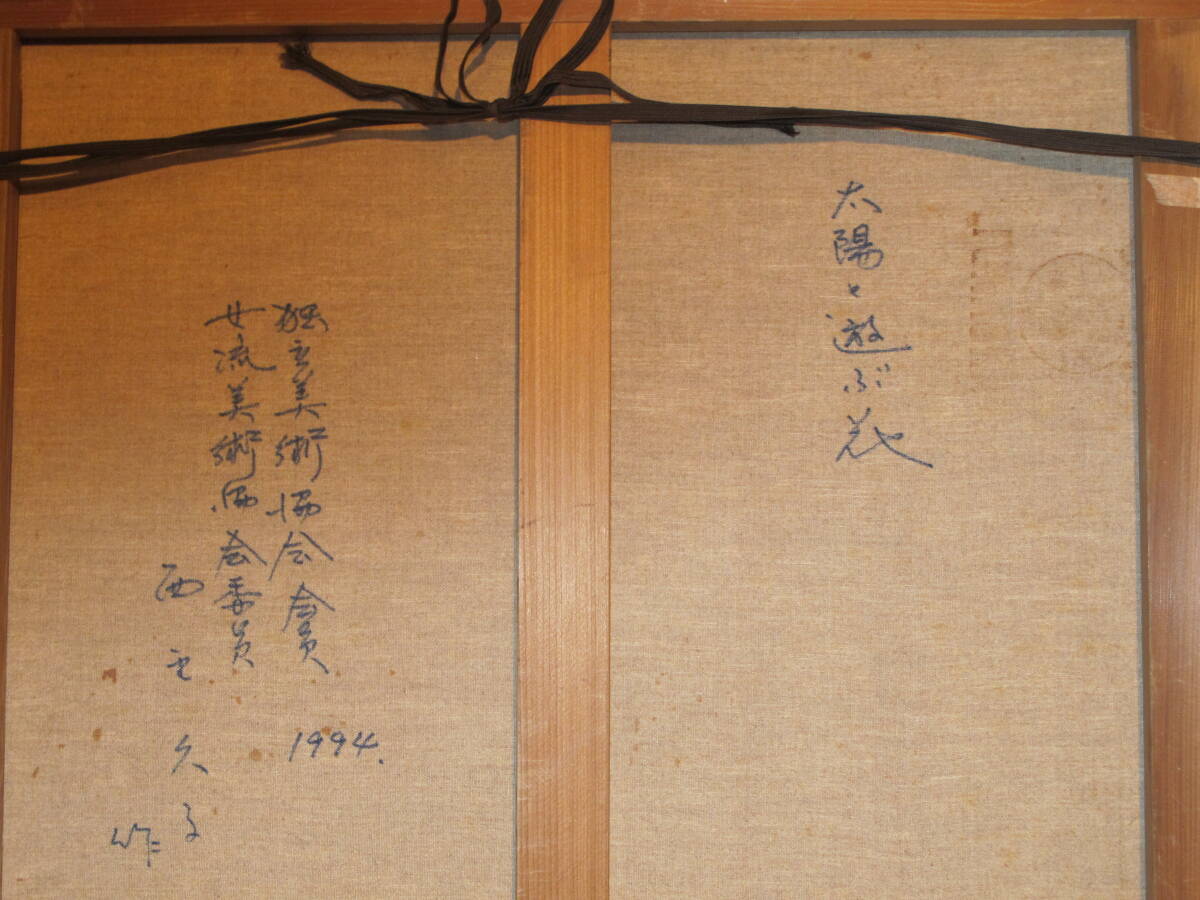 太陽と遊ぶ花
独立美術協会会員
1994.
女流美術協会委員
西 久子
作